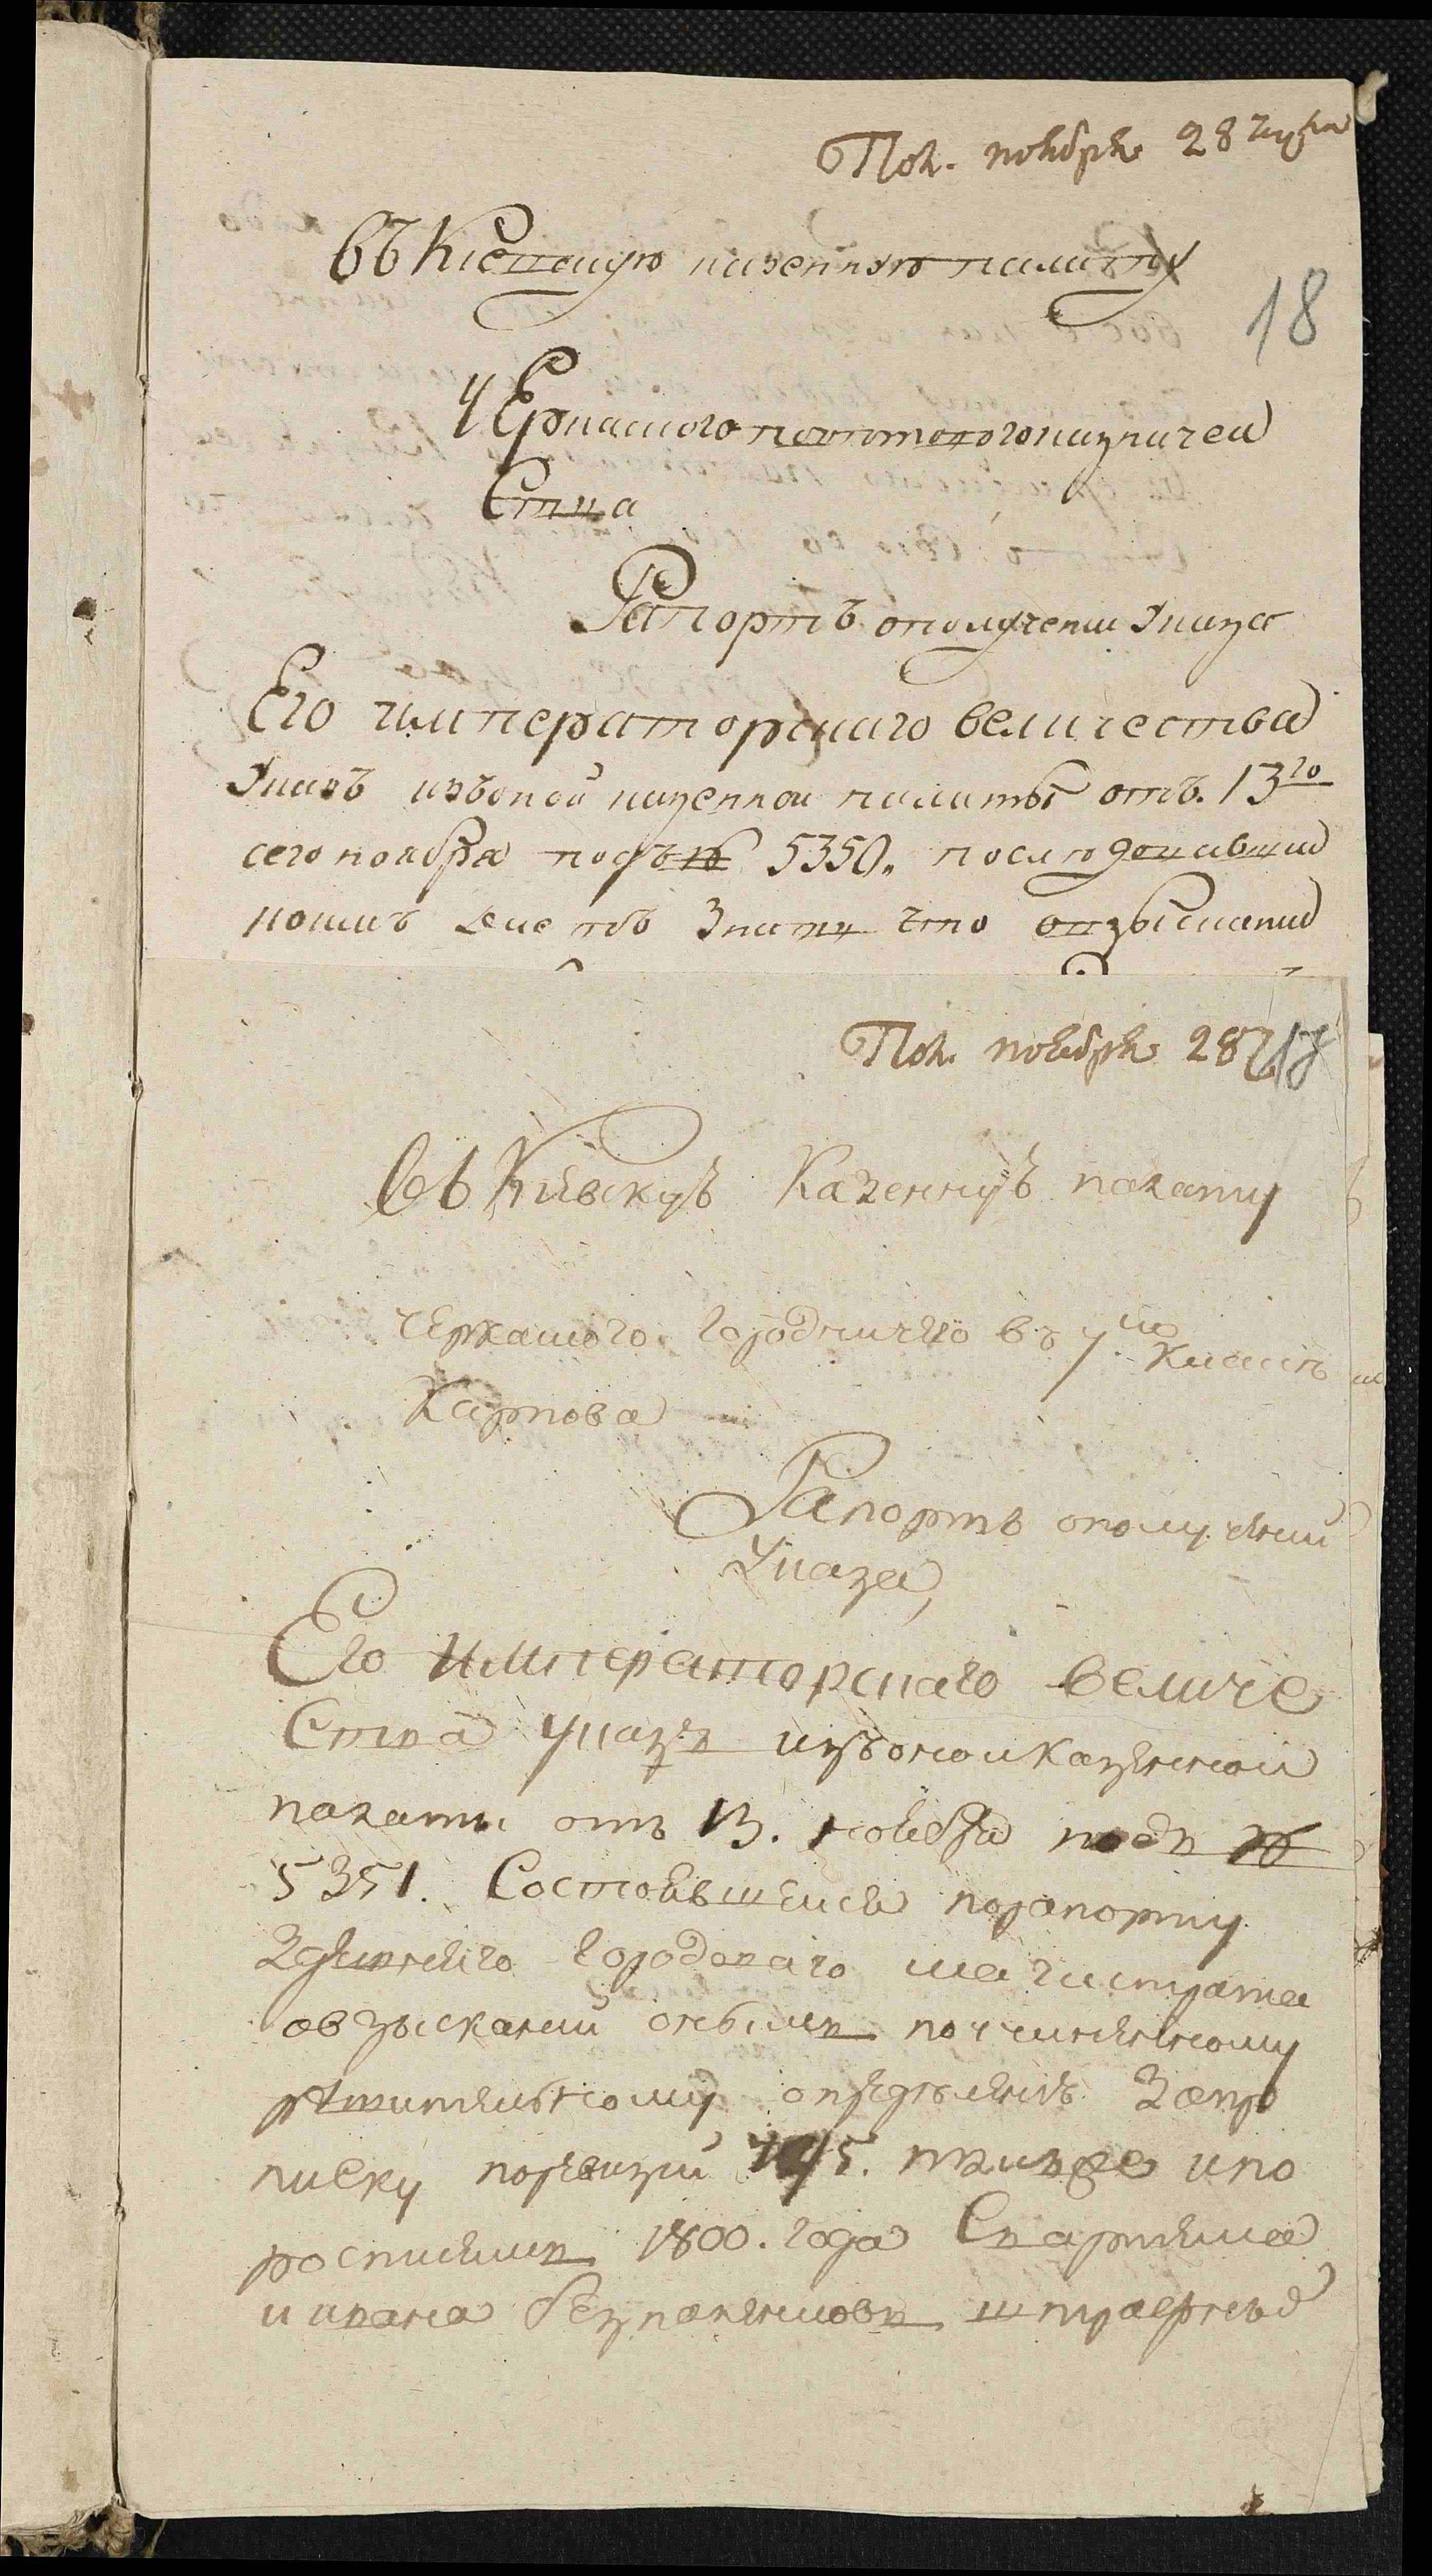 Пол. ноября 28 числа
въ Киевскую казенную палату
18
Черкаского поветового казначея
Рапортъ ополучении Указа
Его императорскаго величества
Указъ изъоной казенной палаты отъ 13го
сего ноября подъ № 5350. последовавший
коимъ знать что овзыскании
Пол. ноября 28 17
въ Киевскую Казенную палату
черкаского городничего въ 7мъ Класса
Карпова
Рапортъ ополучении
Указа,
Его Императорскаго величе
Ства указъ изъоной казенной
палаты отъ 13. ноября подъ №
5351. Состоявшейся порапорту
Здешнего городоваго магистрата
овзыскании подчиненному
решительному определению Запро
писку поревизии 1795. года ипо
росписямъ 1800. года
и ивана штрафныхъ